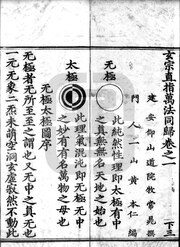 玄宗直指萬法同歸卷之一
建安仰山道院牧常晁撰
門人一山黃本仁編
无極
此純然性理即太極有中
之真无無名天地之始也
太極
此理氣混沌即无極无中
之妙有有名萬物之母也
无極太極圖序
无極者无所至至之謂也又无中之真无也
一元无象二炁未萌空洞太虛寂然不動此